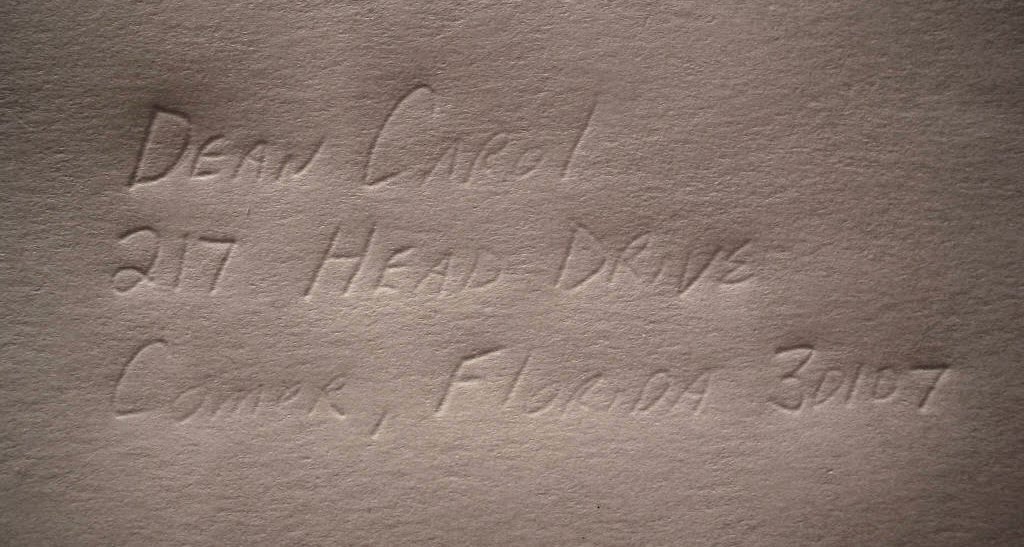 DEAN CAROl
217 HEAD DRIVE
COMOR, FlORIDA 30107